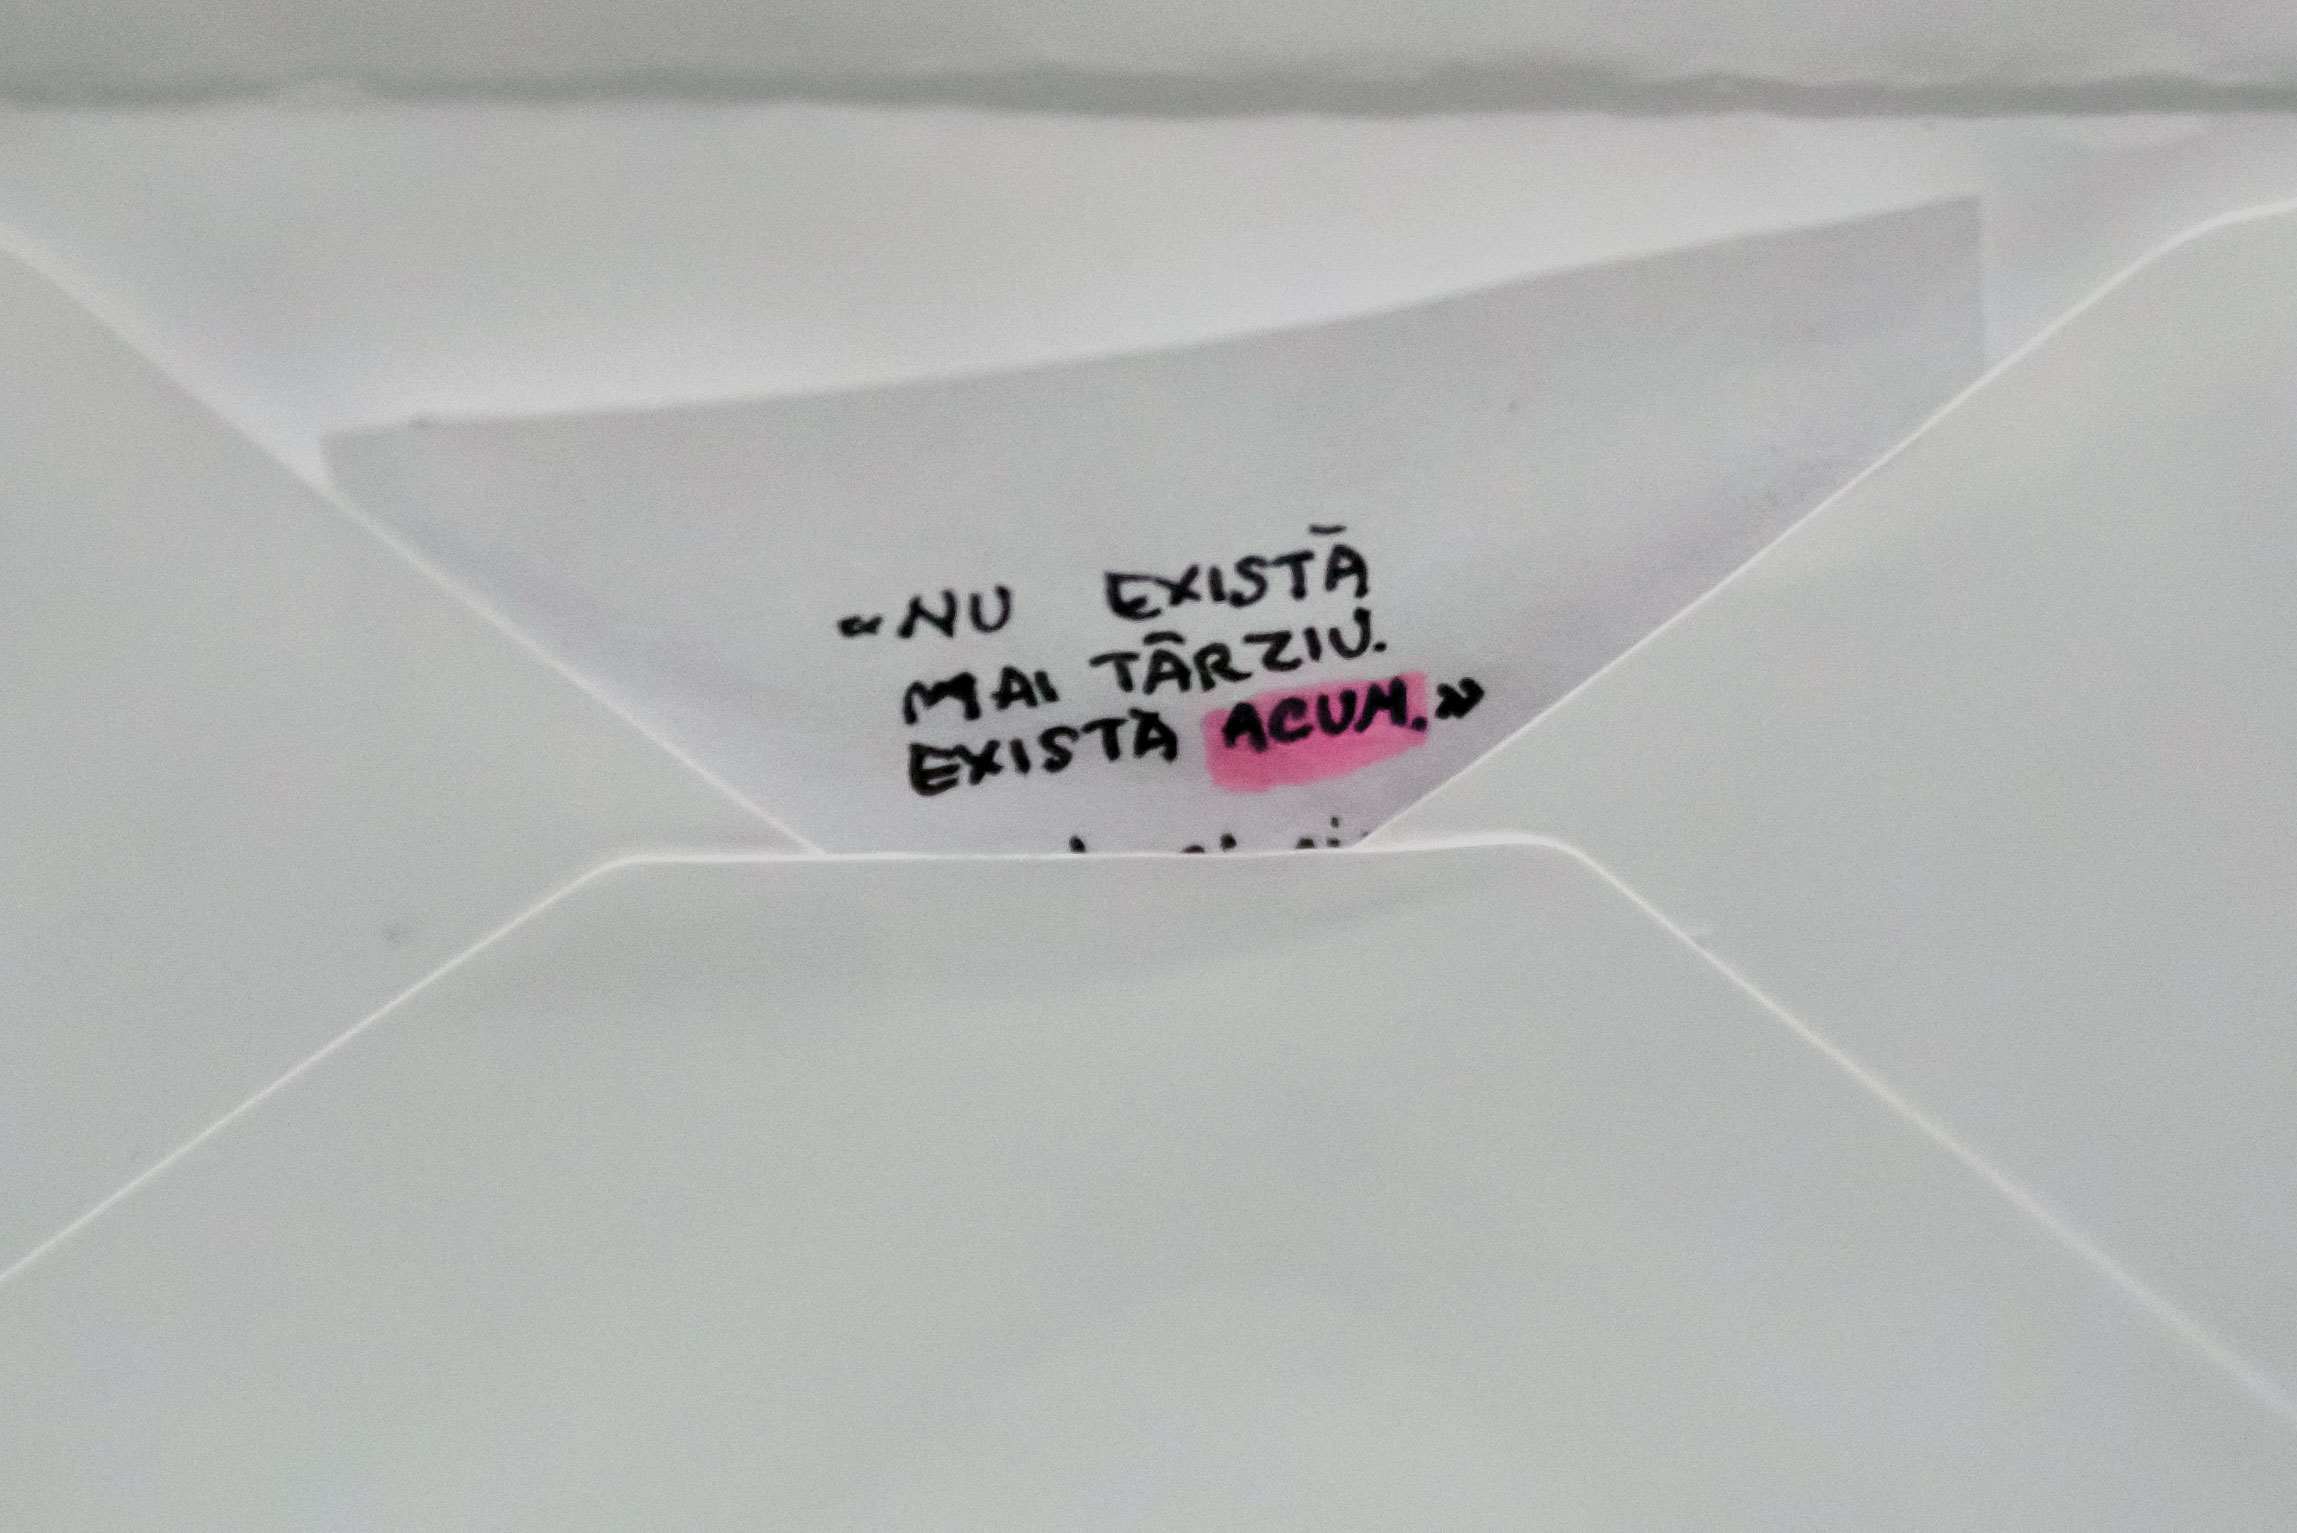 «NU EXISTĂ
MAI TÂRZIU.
EXISTĂ ACUM.»